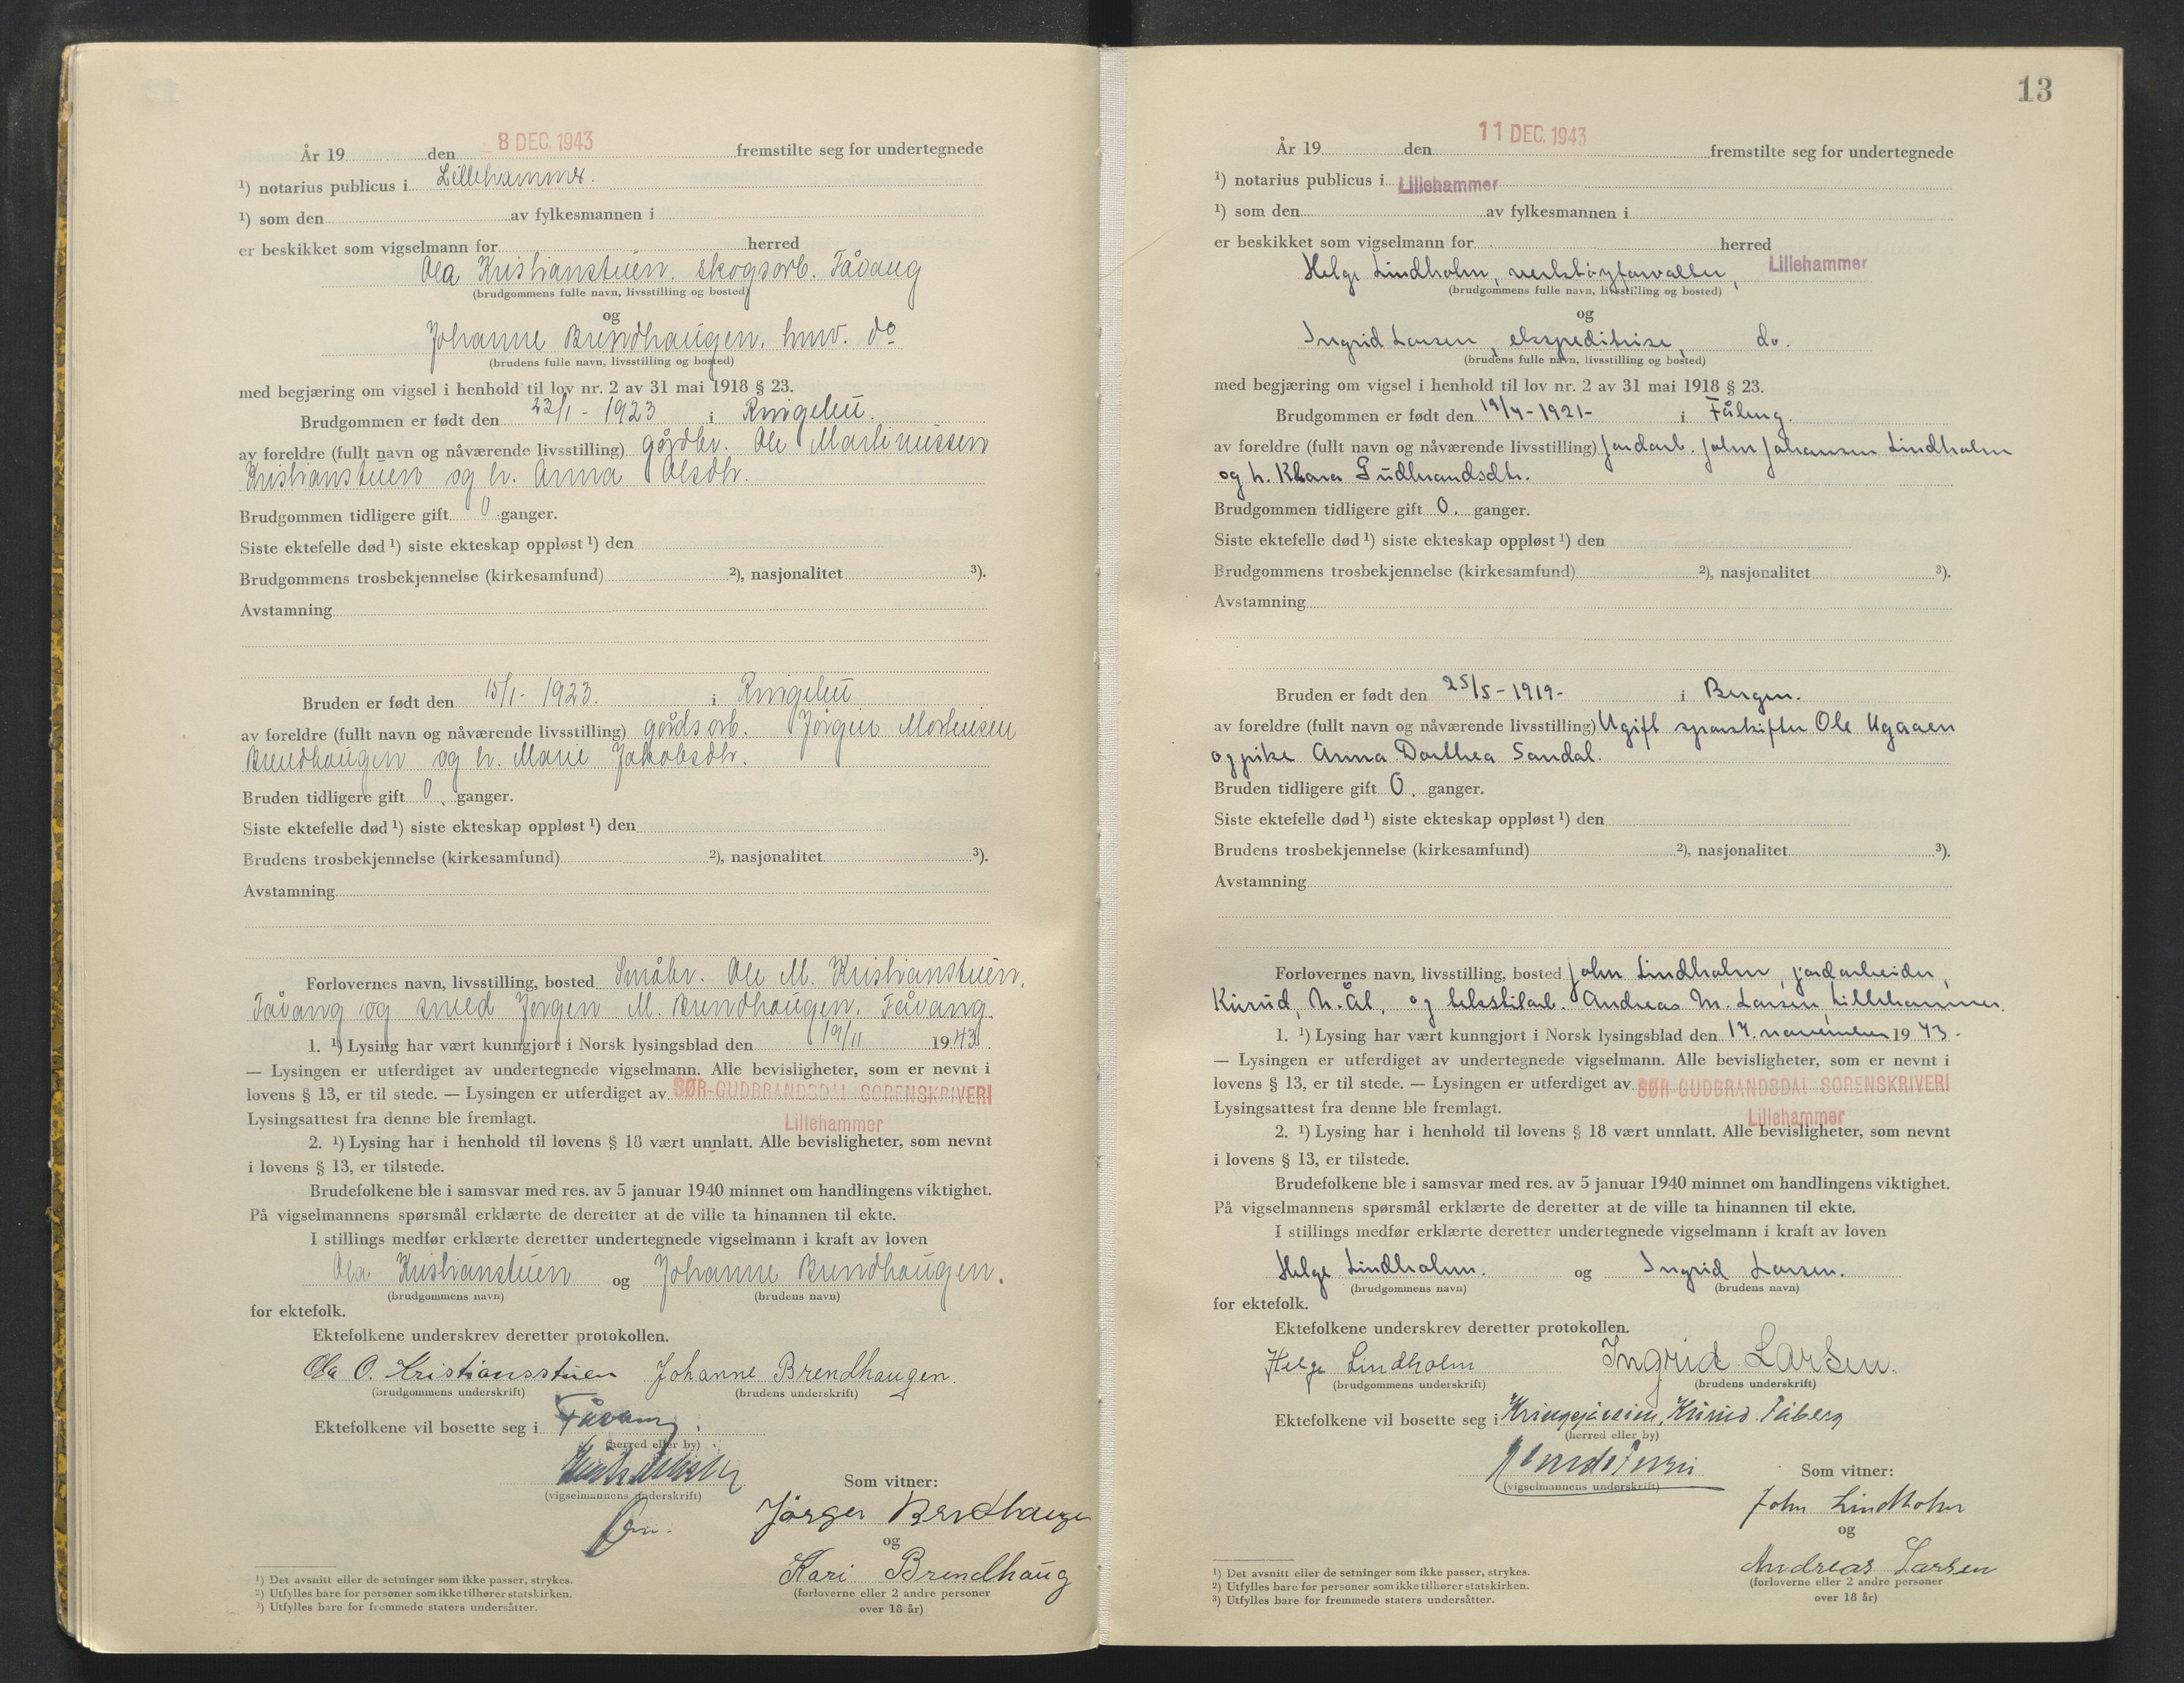 År 19 den 8 DEC. 1943 fremstilte seg for undertegnede
¹) notarius publicus i Lillehammer.
¹) som den av fylkesmannen i
er beskikket som vigselmann for herred
Ola Kristianstuen, skogsarb. Fåvang
(brudgommens fulle navn, livsstilling og bosted)
og
Johanne Brendhaugen, hmv. do
(brudens fulle navn, livsstilling og bosted)
med begjæring om vigsel i henhold til lov nr. 2 av 31 mai 1918 § 23.
Brudgommen er født den 22/1 - 1923 i Ringebu.
av foreldre (fullt navn og nåværende livsstilling) gårdbr. Ole Martinussen
Kristianstuen og h. Anna Olsdtr.
Brudgommen tidligere gift 0 ganger.
Siste ektefelle død ¹) siste ekteskap oppløst ¹) den
Brudgommens trosbekjennelse (kirkesamfund) ²), nasjonalitet ³).
Avstamning
Bruden er født den 15/1 - 1923. i Ringebu
av foreldre (fullt navn og nåværende livsstilling) gårdsarb. Jørgen Mortensen
Brendhaugen og h. Marie Jakobsdtr.
Bruden tidligere gift 0. ganger.
Siste ektefelle død ¹) siste ekteskap oppløst ¹) den
Brudens trosbekjennelse (kirkesamfund) ²), nasjonalitet ³).
Avstamning
Forlovernes navn, livsstilling, bosted Småbr. Ole M. Kristianstuen,
Fåvang og smed Jørgen M. Brendhaugen, Fåvang.
1. ¹) Lysing har vært kunngjort i Norsk lysingsblad den 19/11 1943.
— Lysingen er utferdiget av undertegnede vigselmann. Alle bevisligheter, som er nevnt i
lovens § 13, er til stede. — Lysingen er utferdiget av SØR-GUDBRANDSDAL SORENSKRIVERI
Lysingsattest fra denne ble fremlagt. Lillehammer
2. ¹) Lysing har i henhold til lovens § 18 vært unnlatt. Alle bevisligheter, som nevnt
i lovens § 13, er tilstede.
Brudefolkene ble i samsvar med res. av 5 januar 1940 minnet om handlingens viktighet.
På vigselmannens spørsmål erklærte de deretter at de ville ta hinannen til ekte.
I stillings medfør erklærte deretter undertegnede vigselmann i kraft av loven
Ola Kristianstuen og Johanne Brendhaugen.
(brudgommens navn) (brudens navn)
for ektefolk.
Ektefolkene underskrev deretter protokollen.
Ola O. Kristiansstuen Johanne Brendhaugen.
(brudgommens underskrift) (brudens underskrift)
Ektefolkene vil bosette seg i Fåvang
(herred eller by)
(vigselmannens underskrift)
Som vitner:
Jörgen Brendhaugen
og
Kari Brendhaug
(forloverne eller 2 andre personer
over 18 år)
¹) Det avsnitt eller de setninger som ikke passer, strykes.
²) Utfylles bare for personer som ikke tilhører statskirken.
³) Utfylles bare for fremmede staters undersåtter.
13
År 19 den 11 DEC. 1943 fremstilte seg for undertegnede
¹) notarius publicus i Lillehammer
¹) som den av fylkesmannen i
er beskikket som vigselmann for herred
Helge Lindholm, verktøyforvalter, Lillehammer
(brudgommens fulle navn, livsstilling og bosted)
og
Ingrid Larsen, ekspeditrise, do.
(brudens fulle navn, livsstilling og bosted)
med begjæring om vigsel i henhold til lov nr. 2 av 31 mai 1918 § 23.
Brudgommen er født den 19/4 - 1921 - i Fåberg.
av foreldre (fullt navn og nåværende livsstilling) jordarb. John Johansen Lindholm
og h. Klara Gudbrandsdtr.
Brudgommen tidligere gift 0. ganger.
Siste ektefelle død ¹) siste ekteskap oppløst ¹) den
Brudgommens trosbekjennelse (kirkesamfund) ²), nasjonalitet ³).
Avstamning
Bruden er født den 25/5 - 1919 - i Bergen.
av foreldre (fullt navn og nåværende livsstilling) Ugift sporskifter Ole Ugaaen
og pike Anna Dorthea Sandal.
Bruden tidligere gift 0. ganger.
Siste ektefelle død ¹) siste ekteskap oppløst ¹) den
Brudens trosbekjennelse (kirkesamfund) ²), nasjonalitet ³).
Avstamning
Forlovernes navn, livsstilling, bosted John Lindholm, jordarbeider,
Kurud, N. Ål, og tekstilarb. Andreas M. Larsen, Lillehammer.
1. ¹) Lysing har vært kunngjort i Norsk lysingsblad den 17. november 1943.
— Lysingen er utferdiget av undertegnede vigselmann. Alle bevisligheter, som er nevnt i
lovens § 13, er til stede. — Lysingen er utferdiget av SØR-GUDBRANDSDAL SORENSKRIVERI
Lysingsattest fra denne ble fremlagt. Lillehammer
2. ¹) Lysing har i henhold til lovens § 18 vært unnlatt. Alle bevisligheter, som nevnt
i lovens § 13, er tilstede.
Brudefolkene ble i samsvar med res. av 5 januar 1940 minnet om handlingens viktighet.
På vigselmannens spørsmål erklærte de deretter at de ville ta hinannen til ekte.
I stillings medfør erklærte deretter undertegnede vigselmann i kraft av loven
Helge Lindholm. og Ingrid Larsen.
(brudgommens navn) (brudens navn)
for ektefolk.
Ektefolkene underskrev deretter protokollen.
Helge Lindholm Ingrid Larsen.
(brudgommens underskrift) (brudens underskrift)
Ektefolkene vil bosette seg i Kurud, Fåberg
(herred eller by)
(vigselmannens underskrift)
Som vitner:
John Lindholm
og
Andreas Larsen
(forloverne eller 2 andre personer
over 18 år)
¹) Det avsnitt eller de setninger som ikke passer, strykes.
²) Utfylles bare for personer som ikke tilhører statskirken.
³) Utfylles bare for fremmede staters undersåtter.